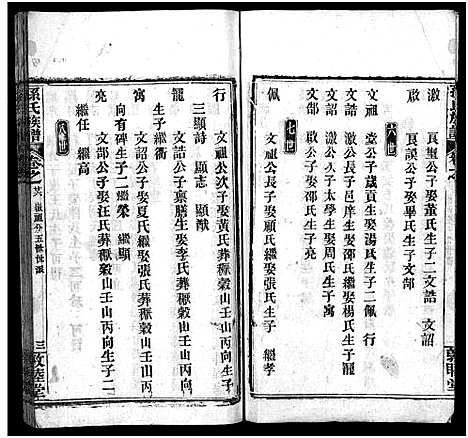 激　良璽公子娶董氏生子二文誥　文詔
啟　良誤公子娶畢氏生子文郁
六世
文祖　堂公子歲貢生娶湯氏生子二佩　行
文誥　激公長子邑庠生娶邵氏繼娶楊氏生子龍
文詔　激公次子太學生娶周氏生子寓
文郁　啟公子娶邱氏生子亮
七世
佩　文祖公長子娶顧氏繼娶張氏生子　繼孝
行　文祖公次子娶黃氏葬秤穀山壬山丙向生子
三顯詩　顯志　顯猷
龍　文誥公子稟膳生娶李氏葬秤穀山壬山丙向
生子繼衛
寓　文詔公子娶夏氏繼娶張氏葬秤穀山壬山丙
向有碑生子二繼榮　繼顯
亮　文郁公子娶汪氏葬秤穀山壬山丙向生子二
繼任　繼高
八世
孫氏族譜
卷之
三
敦睦堂